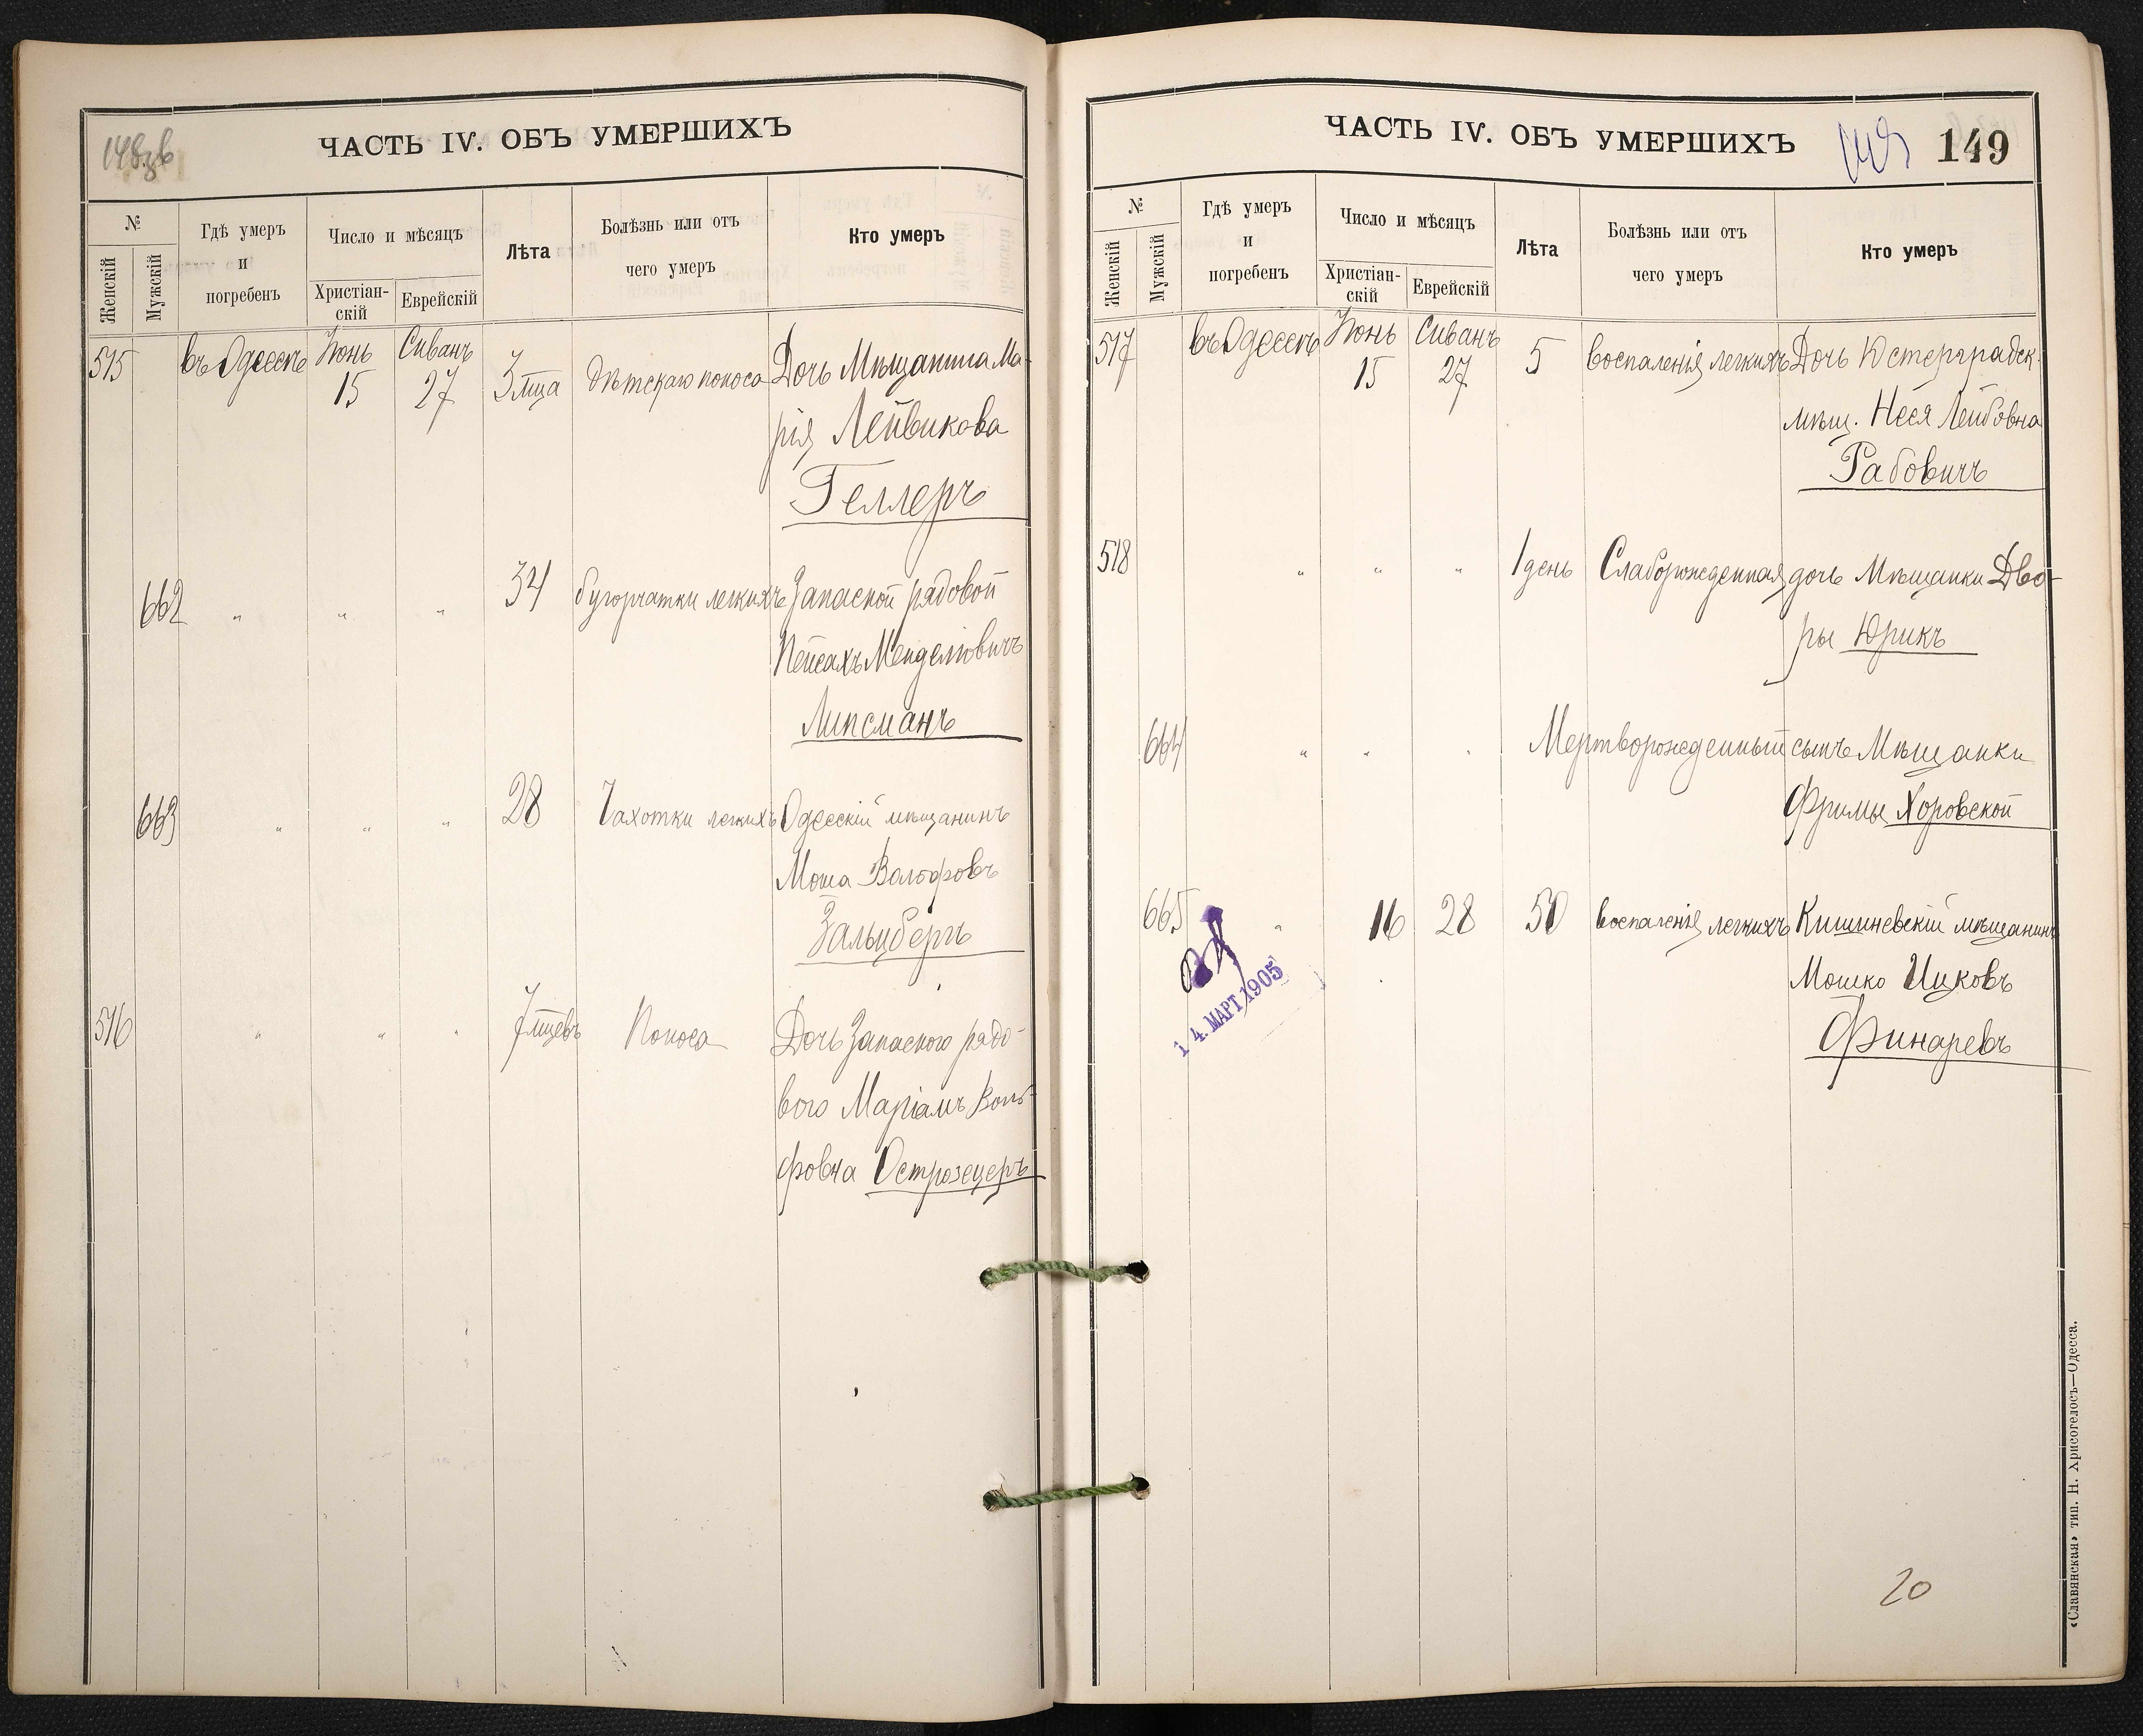 148 зв
ЧАСТЬ IV. ОБЪ УМЕРШИХЪ
№
Женскій
Мужскій
Гдѣ умеръ
и
погребенъ
Число и мѣсяцъ
Христіан-
скій
Еврейскій
Лѣта
Болѣзнь или отъ
чего умеръ
Кто умеръ
515 въ Одессѣ Іюнь 15 Сиванъ 27 3 мца дѣтскаго поноса Дочь Мѣщанина Ма-
рія Лейвикова
Геллеръ
662 " " " 34 бугорчатки легкихъ Запасной рядовой
Пейсахъ Менделіовичъ
Липсманъ
663 " " " 28 Чахотки легкихъ Одесскій мѣщанинъ
Моша Вольфовъ
Зальцбергъ
516 " " " 7 мцевъ Поноса Дочь Запасного рядо-
вого Маріамъ Воль-
фовна Острозецеръ
ЧАСТЬ IV. ОБЪ УМЕРШИХЪ
149
№
Женскій
Мужскій
Гдѣ умеръ
и
погребенъ
Число и мѣсяцъ
Христіан-
скій
Еврейскій
Лѣта
Болѣзнь или отъ
чего умеръ
Кто умеръ
517 въ Одессѣ Іюнь 15 Сиванъ 27 5 воспаленія легкихъ Дочь
мѣщ. Неся Лейбовна
Рабовичъ
518 " " " 1 день Слаборожденная дочь Мѣщанки Дво-
ры Юрикъ
664 " " " Мертворожденный сынъ Мѣщанки
Фримы Хоровской
665 " 16 28 50 воспаленія легкихъ Кишиневскій мѣщанинъ
Мошко Ицковъ
Финаревъ
14. МАРТ 1905
20
«Славянская» тип. Н. Хрисогелосъ—Одесса.